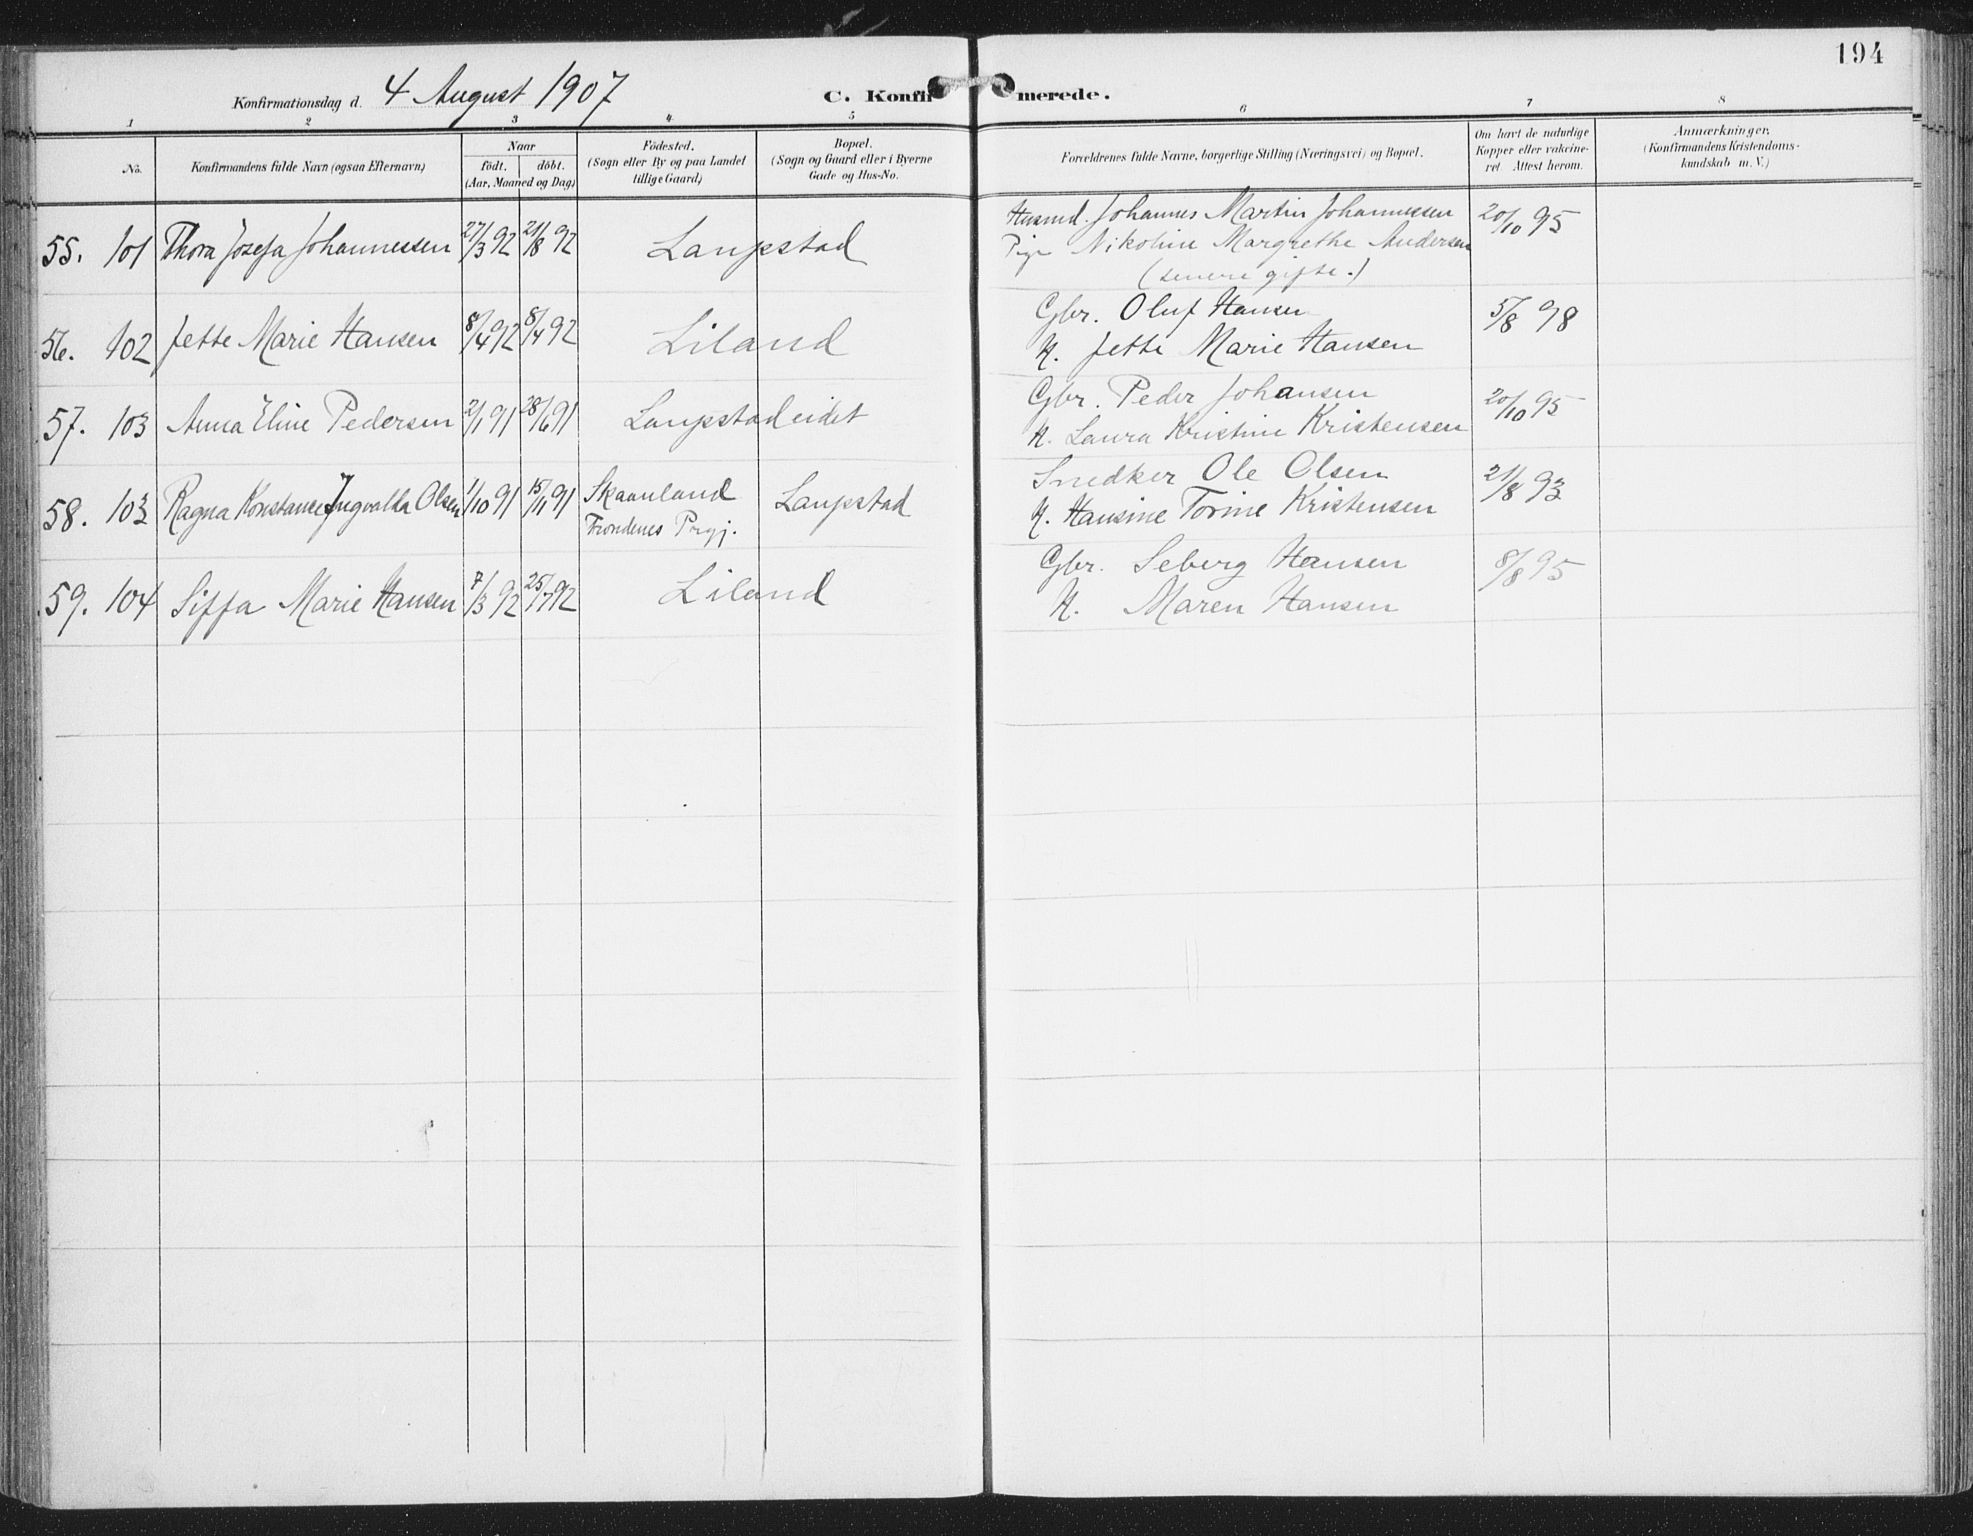 194
Konfirmationsdag d. 4 August 1907 C. Konfir merede.
1 2 3 4 5 6 7 8
No. Konfirmandens fulde Navn (ogsaa Efternavn) Naar födt. döbt. (Aar, Maaned og Dag)
Födested. (Sogn eller By og paa Landet tillige Gaard)
Bopæl. (Sogn og Gaard eller i Byerne Gade og Hus-No.
Forældrenes fulde Navne, borgerlige Stilling (Næringsvei) og Bopæl.
Om havt de naturlige Kopper eller vakcineret Attest herom.
Anmærkninger. (Konfirmandens Kristendomskundskab m. V.)
55. 101 Thora Josefa Johannessen 27/3 92 21/8 92 Laupstad Husmd. Johannes Martin Johannessen 20/10 95
Pige Nikoline Margrethe Andersen
(senere gifte.)
56. 102 Jette Marie Hansen 8/4 92 8/4 92 Liland Gbr. Oluf Hansen 5/8 98
H. Jette Marie Hansen
57. 103 Anna Eline Pedersen 2/1 91 28/6 91 Laupstadeidet Gbr. Peder Johansen 20/10 95
H. Laura Kristine Kristensen
58. 103 Ragna Konstance Ingvalda Olsen 1/10 91 15/11 91 Skaanland Laupstad Snedker Ole Olsen 21/8 93
Trondenes Prgj. H. Hansine Torine Kristensen
59. 104 Siffa Marie Hansen 7/3 92 25/7 92 Liland Gbr. Seberg Hansen 8/8 95
H. Maren Hansen